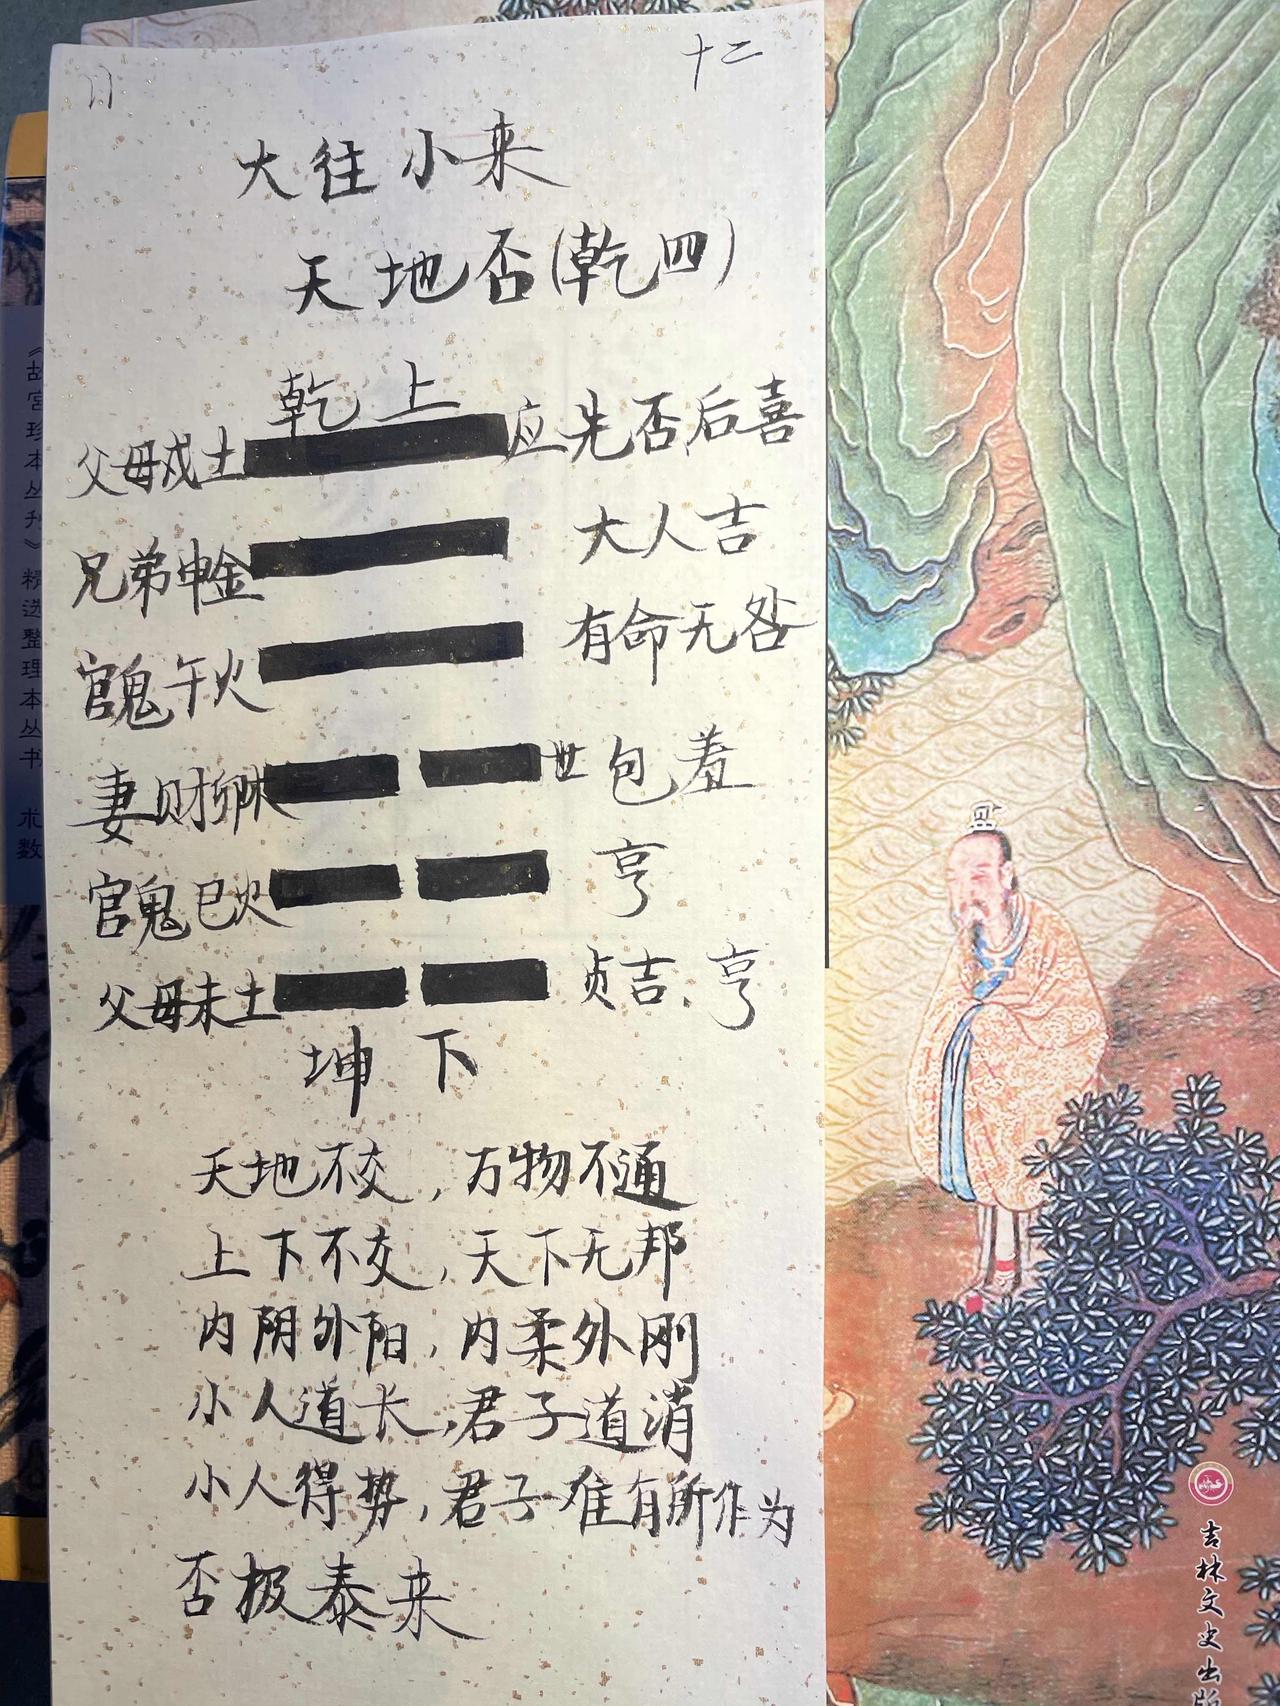 十二
大往小来
天地否(乾四)
乾上
父母戌土 应 先否后喜
兄弟申金 大人吉
官鬼午火 有命无咎
妻财卯木 世 包羞
官鬼巳火 亨
父母未土 贞吉、亨
坤下
天地不交,万物不通
上下不交,天下无邦
内阴外阳,内柔外刚
小人道长,君子道消
小人得势,君子难有所作为
否极泰来
《故宫珍本丛刊》精选整理本丛书 术数
吉林文史出版